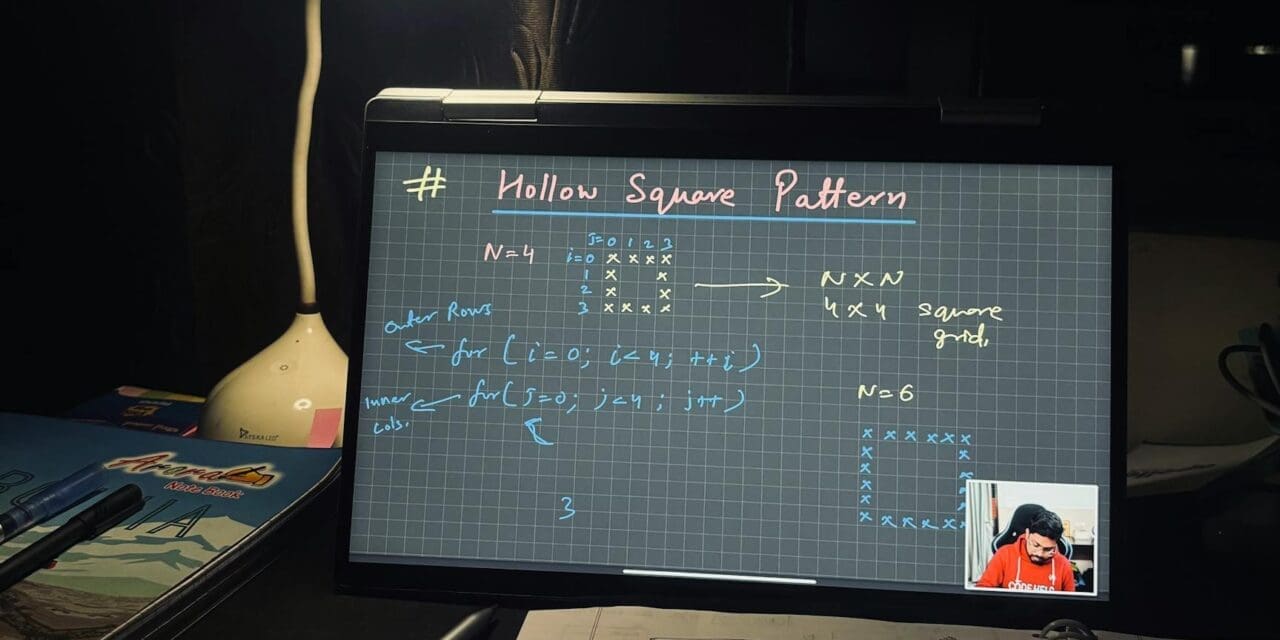 # Hollow Square Pattern
N=4
J=0 1 2 3
i=0 x x x x
1 x x
2 x x
3 x x x x
N x N
4 x 4 square
grid.
outer Rows
for ( i=0; i<4; ++i )
Inner
cols.
for( J=0; j<4 ; j++ )
{
3
N=6
x x x x x x
x x
x x
x x
x
x x x x x x
Ararat
Note Book